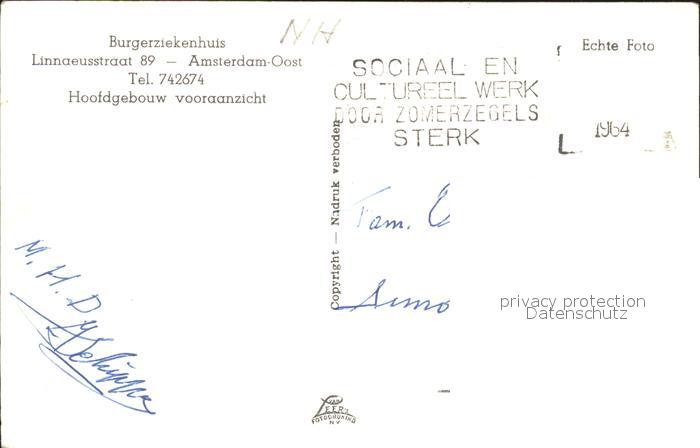 NH
Burgerziekenhuis
Linnaeusstraat 89 — Amsterdam-Oost
Tel. 742674
Hoofdgebouw vooraanzicht
SOCIAAL EN
CULTUREEL WERK
DOOR ZOMERZEGELS
STERK
Echte Foto
1964
Copyright — Nadruk verboden
Fam.
privacy protection
Datenschutz
M. H. D
VAN
LEER'S
FOTODRUKIND
N.V.